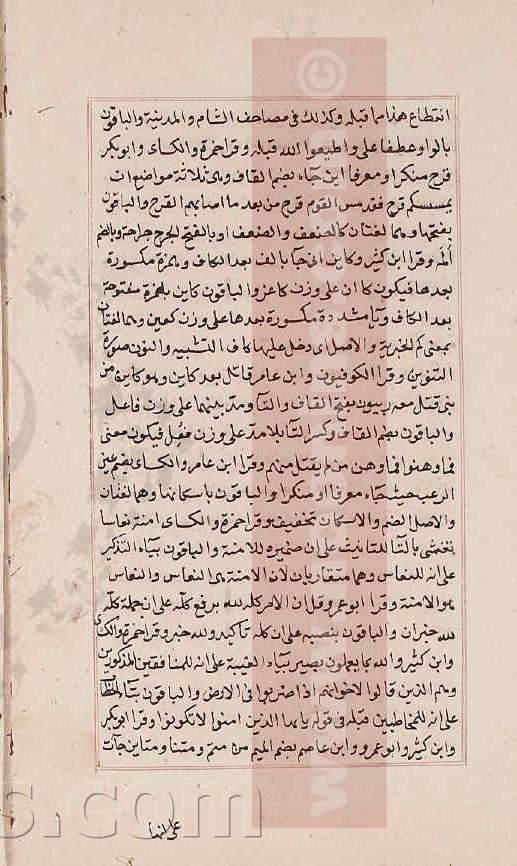 انقطاع هذا مما قبله وكذلك في مصاحف الشام والمدينة والباقون
بالواو عطفا على واطيعوا الله قبله وقرا حمزة والكساى وابوبكر
قرح منكرا ومعرفا اين جاء بضم القاف وهى ثلاثة مواضع ان
يمسسكم قرح فقد مس القوم قرح من بعد ما اصابهم القرح والباقون
بفتحها وهما لغتان كالضعف والضعف او بالفتح الجرح جراحة وبالضم
المه وقرا ابن كثير وكاين اين جا بالف بعد الكاف وهمزة مكسورة
بعدها فيكون كاان على وزن كاعن والباقون كاين بهمزة مفتوحة
بعد الكاف ويا مشددة مكسورة بعدها على وزن كعين وهما لغتان
بمعنى كم الخبرية والاصل اى دخل عليها كاف التشبيه والنون صورة
التنوين وقرا الكوفيون وابن عامر قاتل بعد كاين وهو كاين من
نبى قتل معه ربيون بفتح القاف والتا ومد بينهما على وزن فاعل
والباقون بضم القاف وكسر التا بلا مد على وزن فعل فيكون معنى
فما وهنوا فما وهن من لم يقتل منهم وقرا ابن عامر والكساى بضم عين
الرعب حيث جاء معرفا او منكرا والباقون باسكانها وهما لغتان
والاصل الضم والاسكان تخفيف وقرا حمزة والكساى امنة نعاسا
تغشى بالتا للتانيث على ان ضميره للامنة والباقون بياء التذكير
على انه للنعاس وهما متقاربان لان الامنة هى النعاس والنعاس
هو الامنة وقرا ابوعمرو قل ان الامر كله لله برفع كله على ان جملة كله
لله خبر ان والباقون بنصبه على ان كله تاكيد ولله خبر وقرا حمزة والكساى
وابن كثير والله بما يعملون بصير بياء الغيبة على انه للمنافقين المذكورين
وهم الذين قالوا لاخوانهم اذا ضربوا في الارض والباقون بتا الخطاب
على انه للمخاطبين قبله في قوله يايها الذين امنوا لا تكونوا وقرا ابوبكر
وابن كثير وابوعمرو وابن عاصم بضم الميم من متم ومتنا ومت اين جآت
على انها
www.
s.com
©